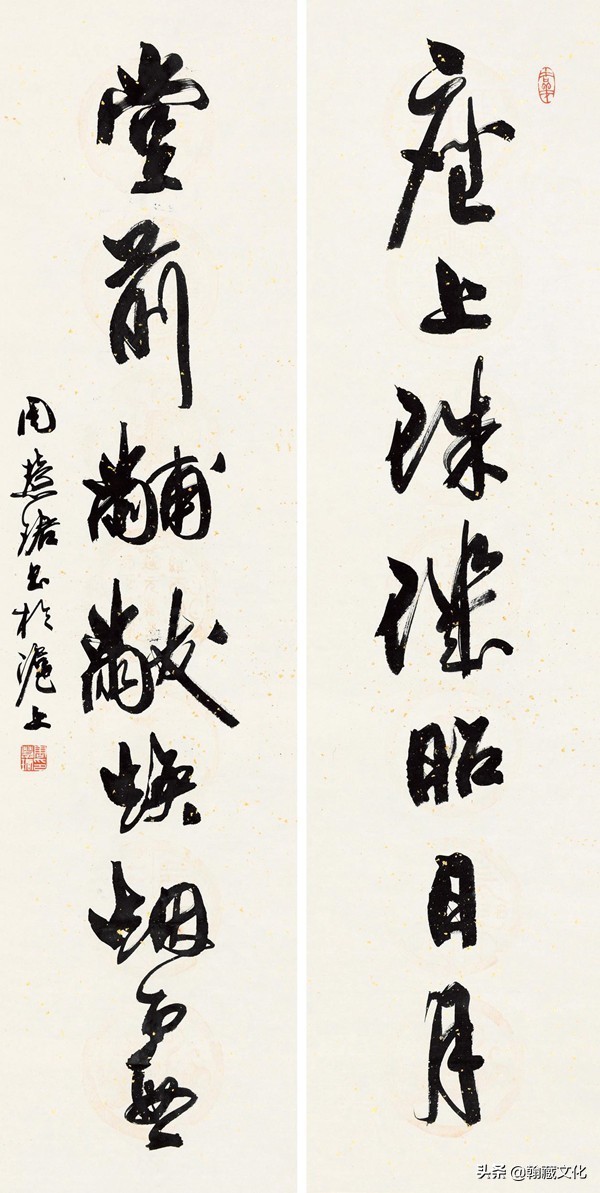 座上珠璣昭日月
堂前黼黻焕烟霞
周慧珺书於滬上
头条 @翰藏文化